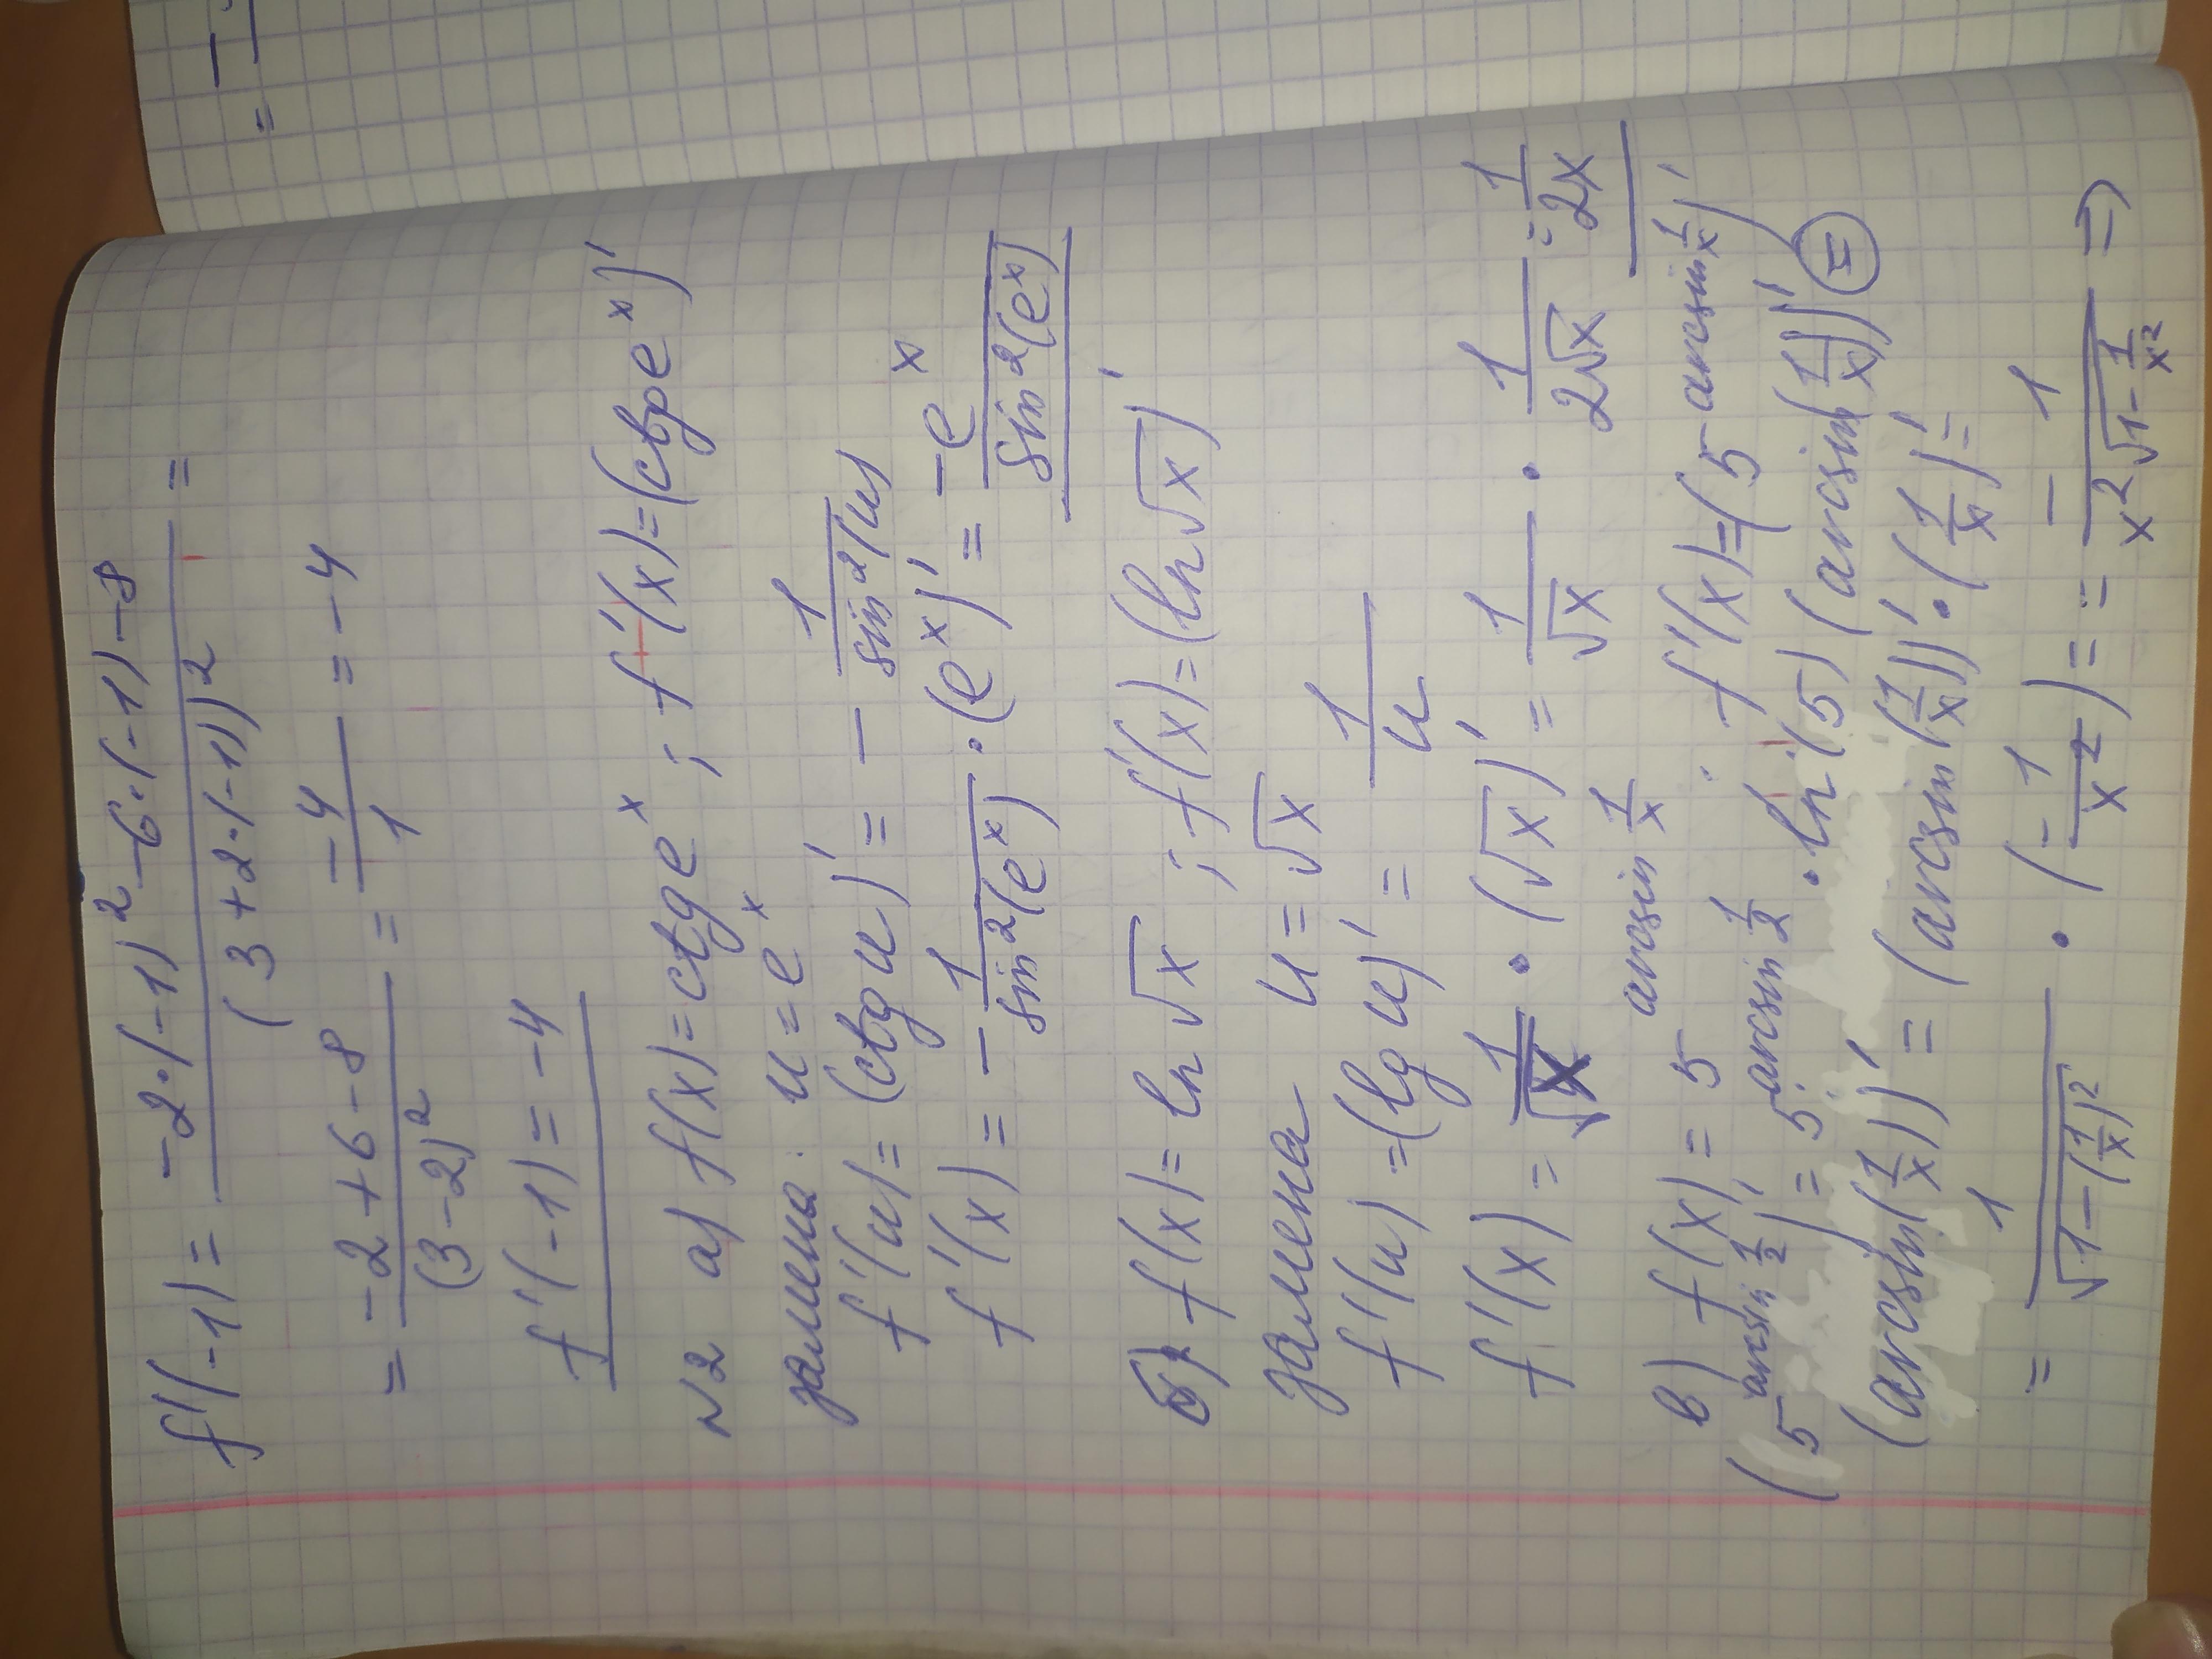 f'(-1) = -2·(-1)² -6·(-1) -8 / (3+2·(-1))² =
= -2+6-8 / (3-2)² = -4/1 = -4
f'(-1) = -4
N2 а) f(x) = ctg eˣ ; f'(x) = (ctg eˣ)'
замена: u = eˣ
f'(u) = (ctg u)' = - 1/sin²(u)
f'(x) = - 1/sin²(eˣ) · (eˣ)' = -eˣ/sin²(eˣ)
б) f(x) = ln √x ; f'(x) = (ln √x)'
замена u = √x
f'(u) = (lg u)' = 1/u
f'(x) = 1/√x · (√x)' = 1/√x · 1/2√x = 1/2x
в) f(x) = 5^(arcsin 1/x) ; f'(x) = (5^(arcsin 1/x))'
(5^(arcsin 1/2))' = 5^(arcsin 1/2) · ln(5) (arcsin(1/x))' =
(arcsin(1/x))' = (arcsin(1/x))' · (1/x)' =
= 1/√(1-(1/x)²) · (-1/x²) = - 1/x²√(1-1/x²) ⇒